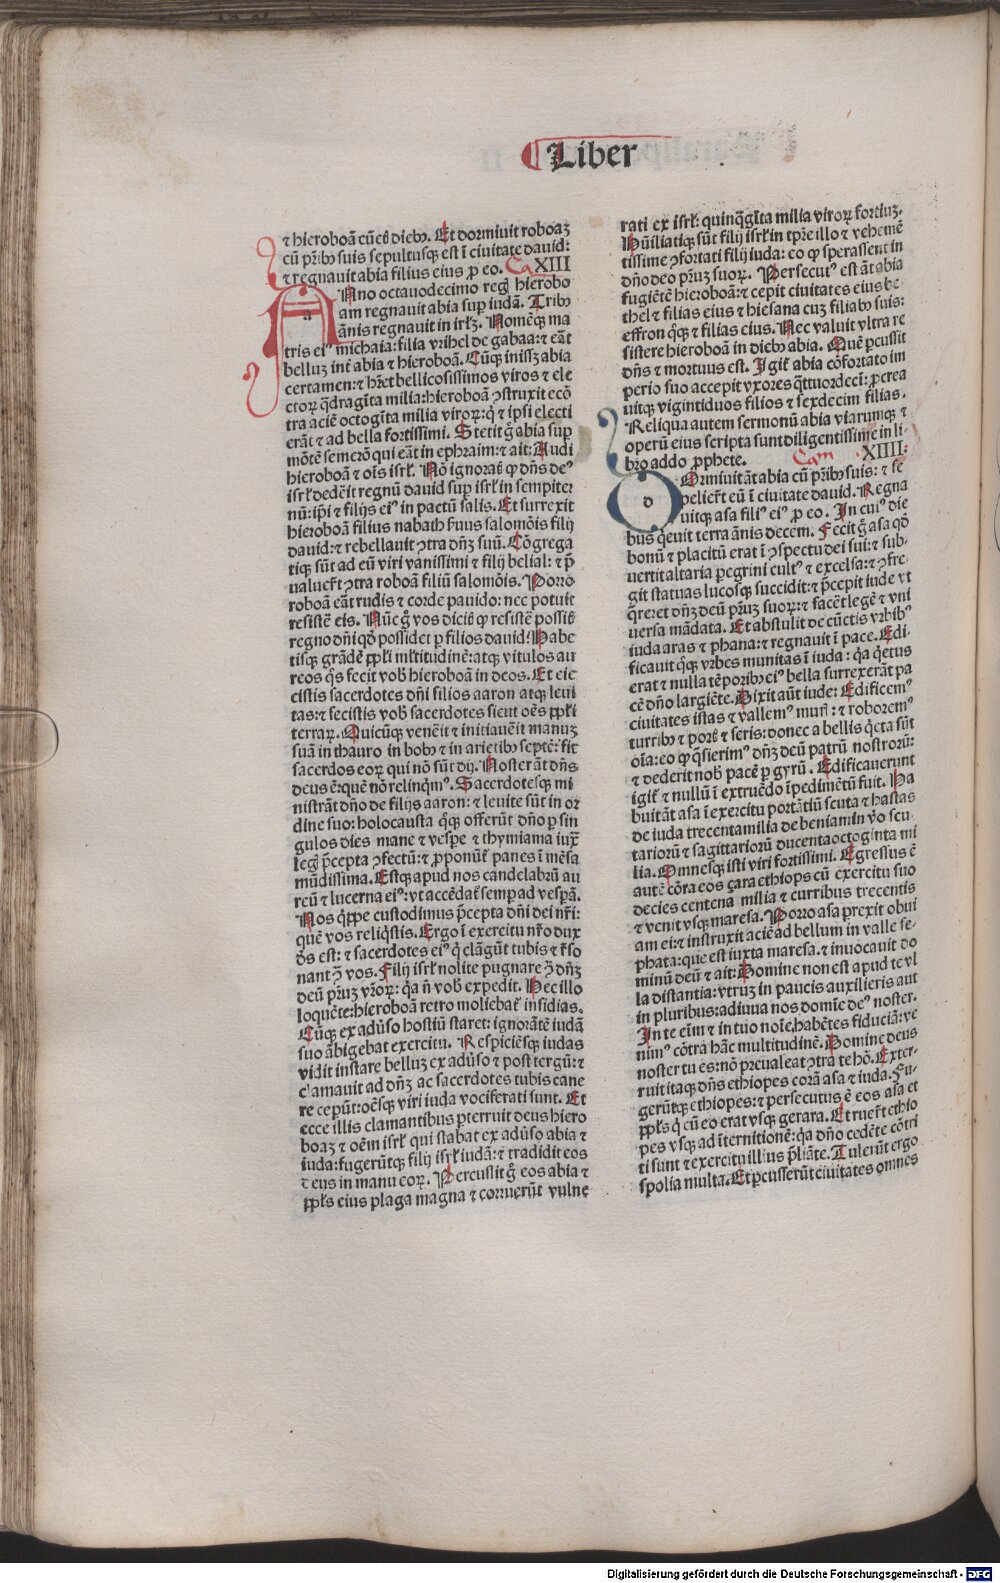 Liber
⁊ hieroboã cũctꝭ dieb⁹. Et dormiuit roboaʒ
cũ pr̃ib⁹ suis sepultusqꝫ est ĩ ciuitate dauid:
⁊ regnauit abia filius eius ꝓ eo. Ca XIII
ANno octauodecimo reg̃ hierobo
am regnauit abia suꝑ iudã. Trib⁹
ãnis regnauit in irłʒ. Nomẽqꝫ ma
tris eiꝰ michaia: filia vrihel de gabaa: ⁊ eãt
belluʒ int̃ abia ⁊ hieroboã. Cũqꝫ inissʒ abia
certamen: ⁊ hr̃et bellicosissimos viros ⁊ ele
ctoꝝ q̃dragĩta milia: hieroboã ꝯstruxit ecõ
tra aciẽ octogĩta milia viroꝝ: q̃ ⁊ ipsi electi
erãt ⁊ ad bella fortissimi. Stetit g̃ abia suꝑ
mõtẽ semerõ qui eãt in ephraim: ⁊ ait: Audi
hieroboã ⁊ oĩs isrł. Nõ ignoratꝭ ꝙ dñs deꝰ
isrł dedẽit regnũ dauid suꝑ isrł in sempiter
nũ: ip̃i ⁊ filijs eiꝰ in pactũ salis. Et surrexit
hieroboã filius nabath ſuus salomõis filij
dauid: ⁊ rebellauit ꝯtra dñʒ suũ. Cõgrega
tiqꝫ sũt ad eũ viri vanissimi ⁊ filij belial: ⁊ p̃
valuer̃t ꝯtra roboã filiũ salomõis. Porro
roboã eãt rudis ⁊ corde pauido: nec potuit
resistẽ eis. Nũc g̃ vos dicitꝭ ꝙ resistẽ possitꝭ
regno dñi qð possidet ꝑ filios dauid! Habe
tisqꝫ grãdẽ ppłi mľtitudinẽ: atqꝫ vitulos au
reos q̃s fecit vob̃ hieroboã in deos. Et eie
cistis sacerdotes dñi filios aaron atqꝫ leui
tas: ⁊ fecistis vob̃ sacerdotes sicut oẽs ppłi
terraꝝ. Quicũqꝫ venẽit ⁊ initiauẽit manuʒ
suã in thauro in bob⁹ ⁊ in arietib⁹ septẽ: fit
sacerdos eoꝝ qui nõ sũt dij. Noster ãt dñs
deus ẽ: quẽ nõ relinq̃mꝰ. Sacerdotesqꝫ mi
nistrãt dño de filijs aaron: ⁊ leuite sũt in or
dine suo: holocausta q̃qꝫ offerũt dño ꝑ sin
gulos dies mane ⁊ vesꝑe ⁊ thymiama iux̃
leg̃ p̃cepta ꝯfectũ: ⁊ ꝓponũt̃ panes ĩ mẽsa
mũdissima. Estqꝫ apud nos candelabrũ au
reũ ⁊ lucerna eiꝰ: vt accẽdat̃ semꝑ ad vesꝑã.
Nos q̃ppe custodimus p̃cepta dñi dei nr̃i:
quẽ vos reliq̃stis. Ergo ĩ exercitu nr̃o dux
ðs est: ⁊ sacerdotes eiꝰ q̃ clãgũt tubis ⁊ r̃so
nant ꝯ̃ vos. Filij isrł nolite pugnare ꝯ̃ dñʒ
deũ pr̃uʒ vr̃oꝝ: q̃a ñ vob̃ expedit. Hec illo
loquẽte: hieroboã retro moliebat̃ insidias.
Cũqꝫ ex adũso hostiũ staret: ignorãtẽ iudã
suo ãbigebat exercitu. Respiciẽsqꝫ iudas
vidit instare belluʒ ex adũso ⁊ post tergũ: ⁊
clamauit ad dñʒ ac sacerdotes tubis cane
re ceꝑũt: oẽsqꝫ viri iuda vociferati sunt. Et
ecce illis clamantibus ꝑterruit deus hiero
boaʒ ⁊ oẽm isrł qui stabat ex adũso abia ⁊
iuda: fugerũtqꝫ filij isrł iudã: ⁊ tradidit eos
deus in manu eoꝝ. Percussit g̃ eos abia ⁊
ppłs eius plaga magna ⁊ corruerũt vulne
rati ex isrł: quinq̃gĩta milia viroꝝ fortiuʒ.
Hũiliatiqꝫ sũt filij isrł in tpr̃e illo ⁊ vehemẽ
tissime ꝯfortati filij iuda: eo ꝙ sperassent in
dño deo pr̃uʒ suoꝝ. Persecutꝰ est ãt abia
fugiẽtẽ hieroboã: ⁊ cepit ciuitates eius be
thel ⁊ filias eius ⁊ hiesana cuʒ filiab⁹ suis:
effron q̃qꝫ ⁊ filias eius. Nec valuit vltra re
sistere hieroboã in dieb⁹ abia. Quẽ ꝑcussit
dñs ⁊ mortuus est. Igit̃ abia cõfortato im
perio suo accepit vxores q̃ttuordecĩ: ꝓcrea
uitqꝫ vigintiduos filios ⁊ sexdecim filias.
Reliqua autem sermonũ abia viarumqꝫ ⁊
operũ eius scripta sunt diligentissime in li
bro addo ꝓphete. Cam XIIII.
DOrmiuit ãt abia cũ pr̃ib⁹ suis: ⁊ se
pelier̃t eũ ĩ ciuitate dauid. Regna
uitqꝫ asa filiꝰ eiꝰ ꝓ eo. In cuiꝰ die
bus q̃euit terra ãnis decem. Fecit g̃ asa qð
bonũ ⁊ placitũ erat ĩ ꝯspectu dei sui: ⁊ sub-
uertit altaria peregrini cultꝰ ⁊ excelsa: ⁊ ꝯfre-
git statuas lucosqꝫ succidit: ⁊ p̃cepit iude vt
q̃reret dñʒ deũ pr̃uʒ suoꝝ: ⁊ facẽt legẽ ⁊ vni
uersa mãdata. Et abstulit de cũctis vrbibꝰ
iuda aras ⁊ phana: ⁊ regnauit ĩ pace. Edi-
ficauit q̃qꝫ vrbes munitas ĩ iuda: q̃a q̃etus
erat ⁊ nulla tẽporib⁹ eiꝰ bella surrexerãt pa
cẽ dño largiẽte. Dixit aũt iude: Edificemꝰ
ciuitates istas ⁊ vallemꝰ murꝭ: ⁊ roboremꝰ
turrib⁹ ⁊ portꝭ ⁊ seris: donec a bellis q̃eta sũt
oĩa: eo ꝙ q̃sierimꝰ dñʒ deũ patrũ nostrorũ:
⁊ dederit nob̃ pacẽ ꝑ gyrũ. Edificauerunt
igit̃ ⁊ nullũ ĩ extruẽdo ĩpedimẽtũ fuit. Ha
buit ãt asa ĩ exercitu portãtiũ scuta ⁊ hastas
de iuda trecentamilia de beniamin ṽo scu
tariorũ ⁊ sagittariorũ ducenta octoginta mi
lia. Omnesqꝫ isti viri fortissimi. Egressus ẽ
autẽ cõra eos çara ethiops cũ exercitu suo
decies centena milia ⁊ curribus trecentis
⁊ venit vsqꝫ maresa. Porro asa ꝑrexit obui
am ei: ⁊ instruxit aciẽ ad bellum in valle se-
phata: que est iuxta maresa. ⁊ inuocauit do
minũ deũ ⁊ ait: Domine non est apud te vl
la distantia: vtruʒ in paucis auxilieris aut
in pluribus: adiuua nos domĩe deꝰ noster.
In te eĩm ⁊ in tuo noĩe, habẽtes fiduciã: ve
nimꝰ cõtra hãc multitudinẽ. Domine deus
noster tu es: nõ preualeat ꝯtra te hõ. Exter-
ruit itaqꝫ dñs ethiopes corã asa ⁊ iuda. Fu-
gerũtqꝫ ethiopes: ⁊ persecutus ẽ eos asa et
ppłs q̃ cũ eo erat vsqꝫ gerara. Et ruer̃t ethio
pes vsqꝫ ad ĩternitionẽ: q̃a dño cedẽte cõtri
ti sunt ⁊ exercitu illius p̃liãte. Tulerũt ergo
spolia multa. Et ꝑcusserũt ciuitates omnes
Digitalisierung gefördert durch die Deutsche Forschungsgemeinschaft - DFG